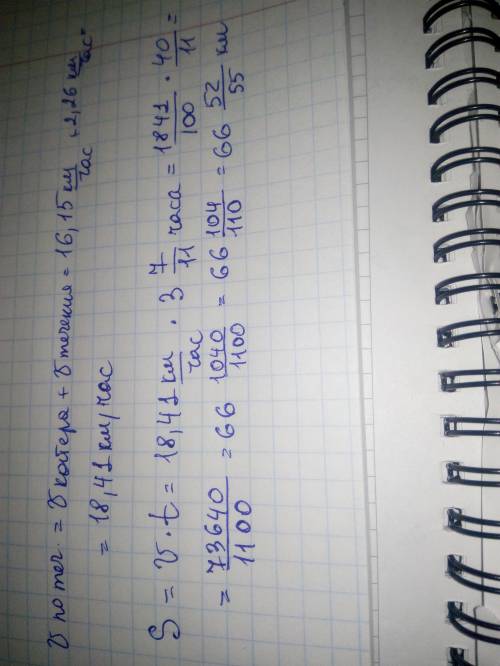 v по теч. = v катера + v течения = 16,15 км/час + 2,26 км/час =
= 18,41 км/час
S = v · t = 18,41 км/час · 3 7/11 часа = 1841/100 · 40/11 =
= 73640/1100 = 66 1040/1100 = 66 104/110 = 66 52/55 км